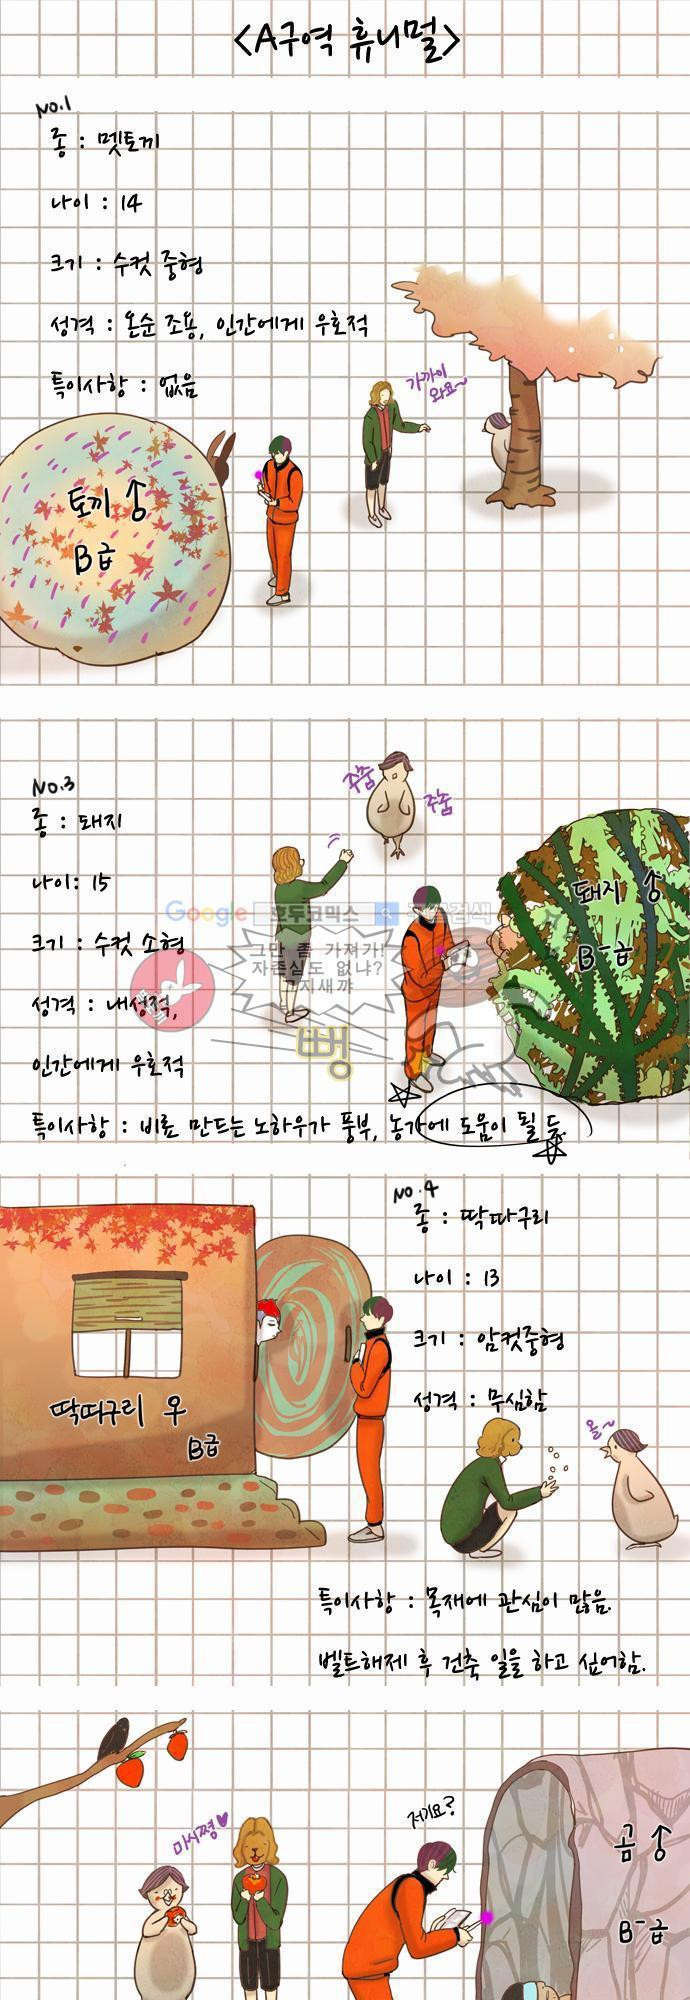 <A구역 휴니멀>
No.1
종 : 멧토끼
나이 : 14
크기 : 수컷 중형
성격 : 온순 조용, 인간에게 우호적
특이사항 : 없음
가까이
와요~
토끼 ♂
B급
No.3
종 : 돼지
나이: 15
크기 : 수컷 소형
성격 : 내성적,
인간에게 우호적
특이사항 : 비료 만드는 노하우가 풍부, 농가에 도움이 될 듯.
주춤
주춤
돼지 ♂
B⁻급
Google 호두코믹스 검색
그만 좀 가져가!
자존심도 없냐?
그지새꺄
뻥
No.4
종 : 딱따구리
나이 : 13
크기 : 암컷중형
성격 : 무심함
딱따구리 우
B급
올~
특이사항 : 목재에 관심이 많음.
벨트해제 후 건축 일을 하고 싶어함.
마시쪙♥
저기요?
곰 ♂
B⁻급